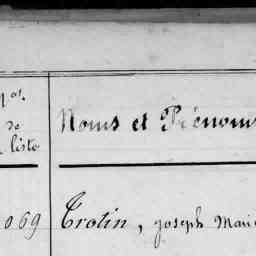 Nos.
de
liste
Noms et Prénoms
069
Trotin, Joseph Marie